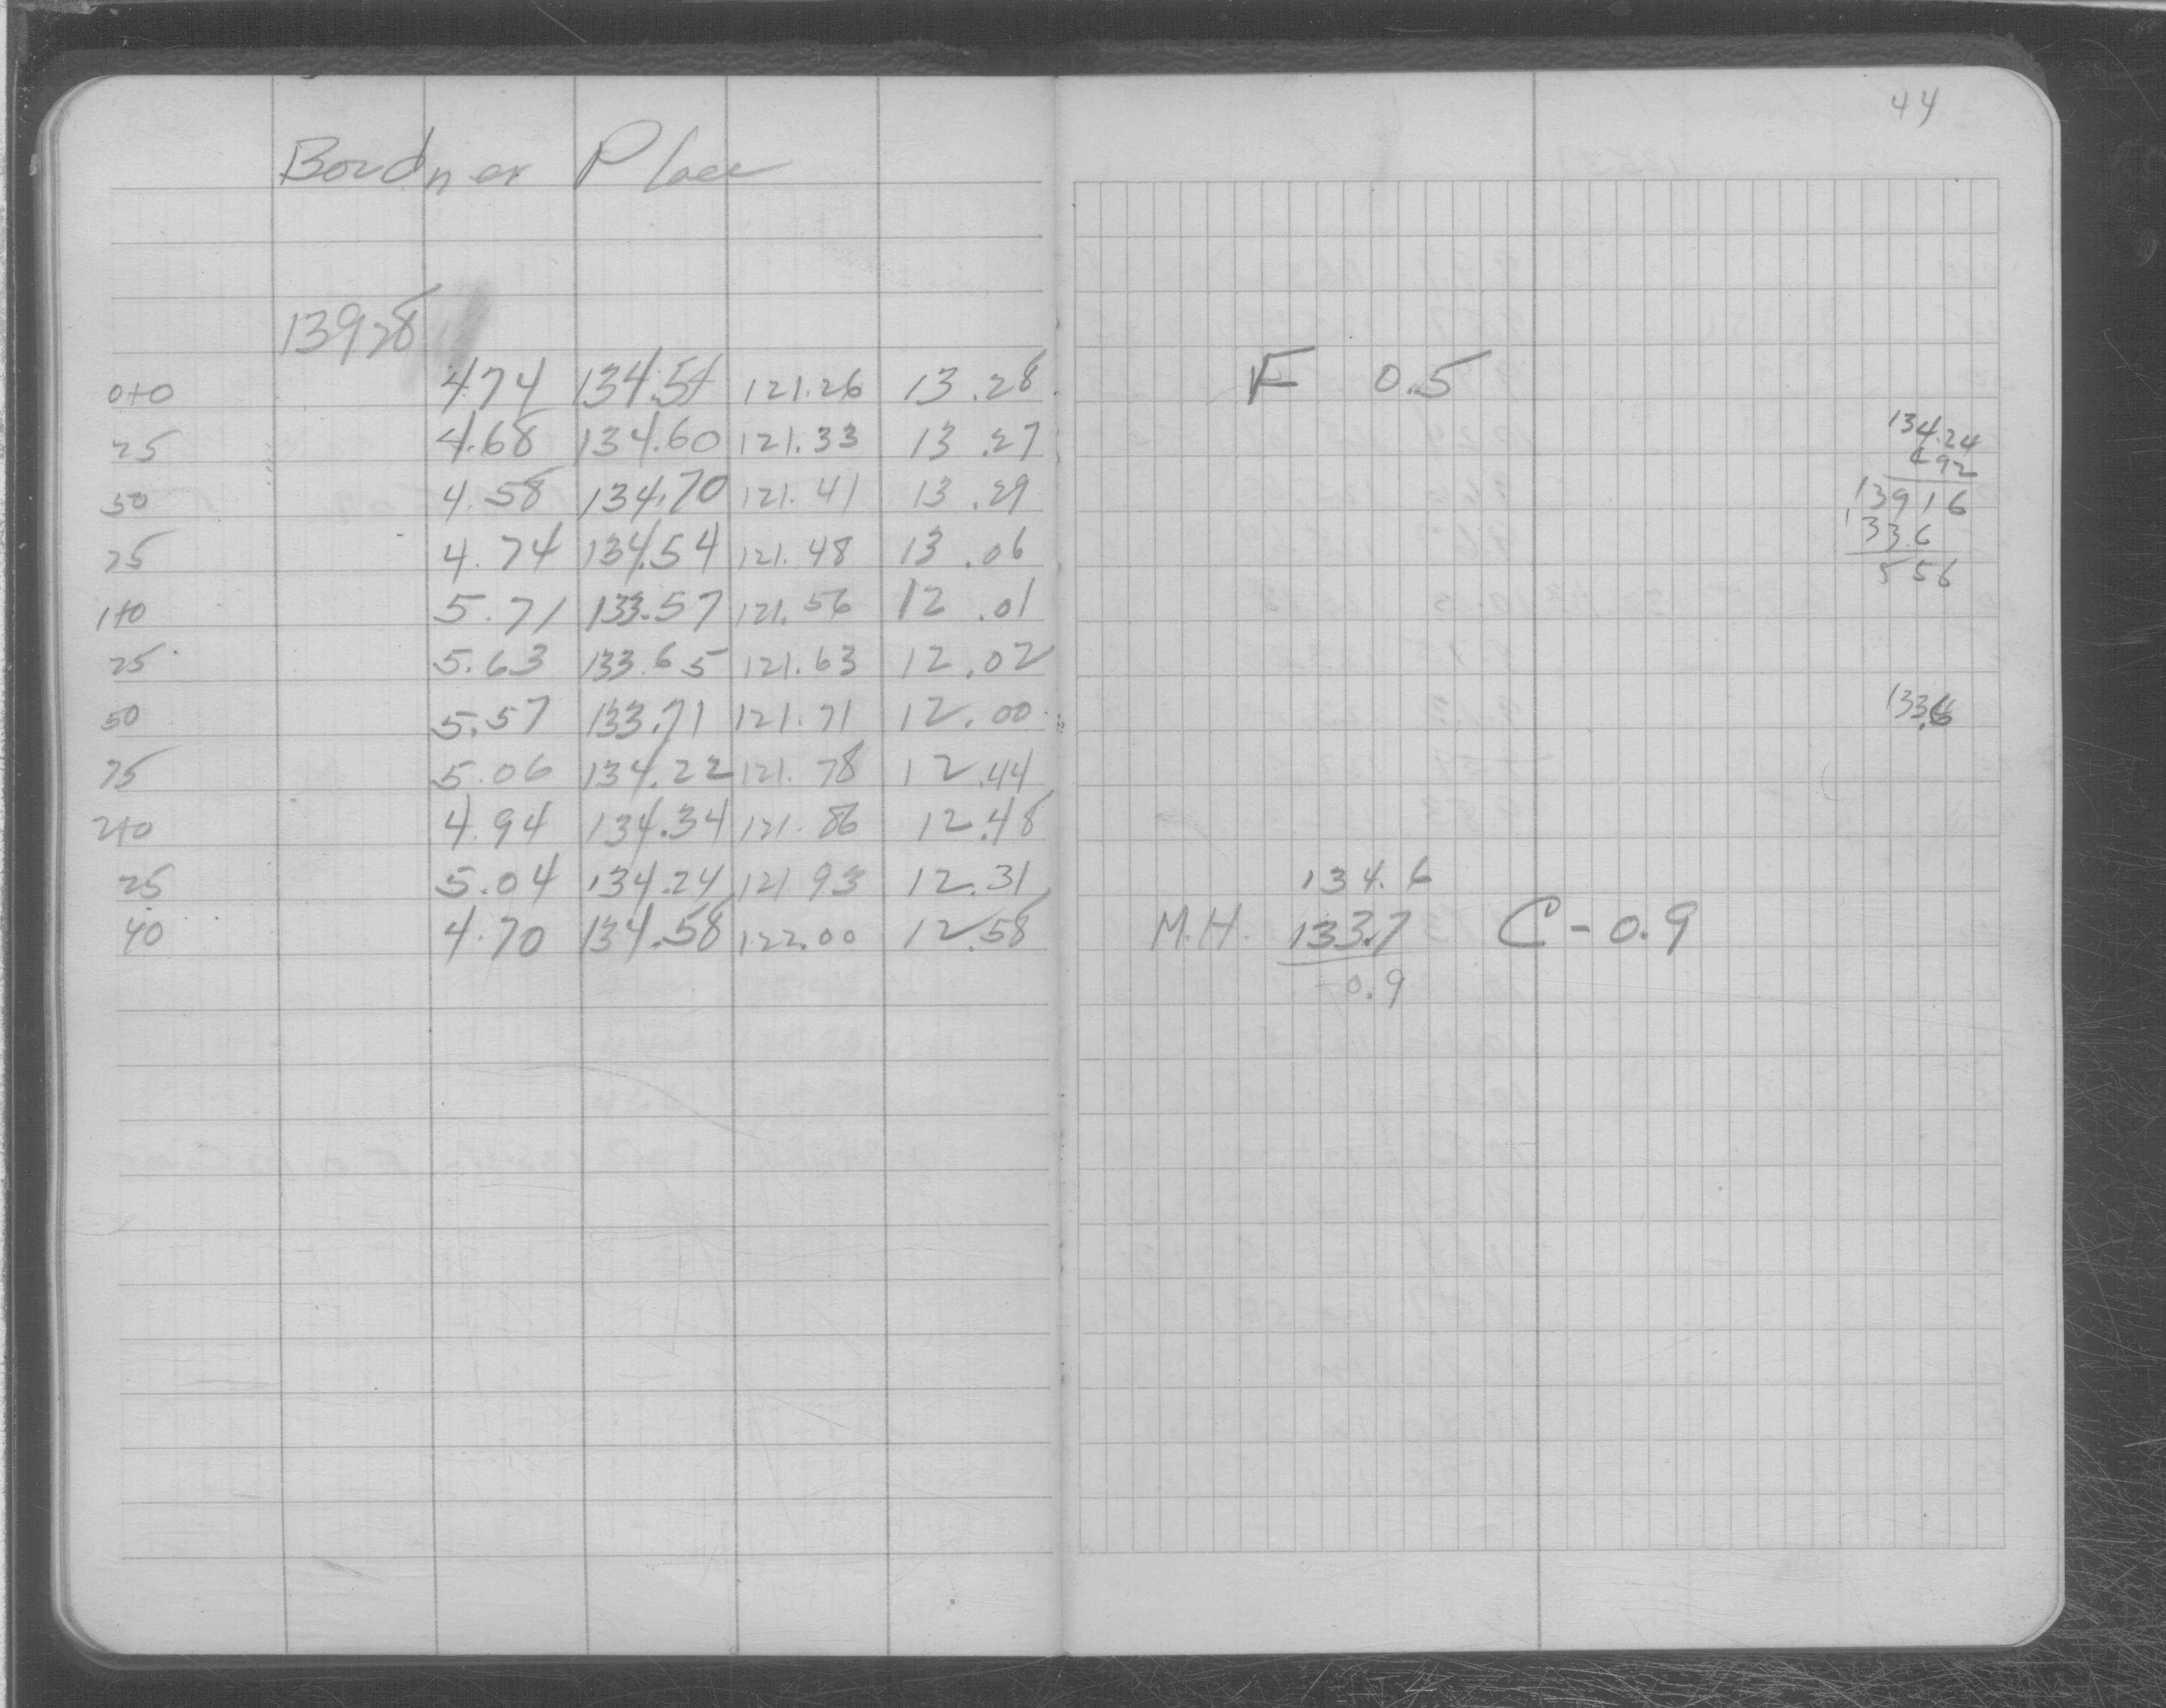 44
Bordner Place
139.28
0+0 4.74 134.54 121.26 13.28
25 4.68 134.60 121.33 13.27
50 4.58 134.70 121.41 13.29
75 4.74 134.54 121.48 13.06
1+0 5.71 133.57 121.56 12.01
25 5.63 133.65 121.63 12.02
50 5.57 133.71 121.71 12.00
75 5.06 134.22 121.78 12.44
2+0 4.94 134.34 121.86 12.48
25 5.04 134.24 121.93 12.31
40 4.70 134.58 122.00 12.58
F 0.5
134.24
4.92
139 16
133.6
5 56
133.6
134.6
M.H. 133.7 C - 0.9
0.9